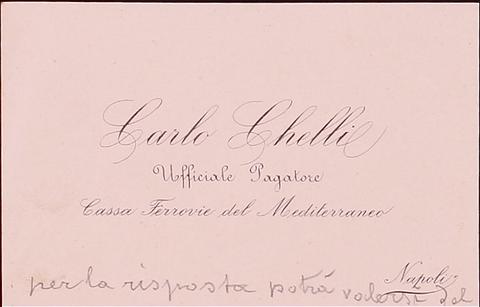 Carlo Chelli
Ufficiale Pagatore
Cassa Ferrovie del Mediterraneo
Napoli
per la risposta potrá valersi del